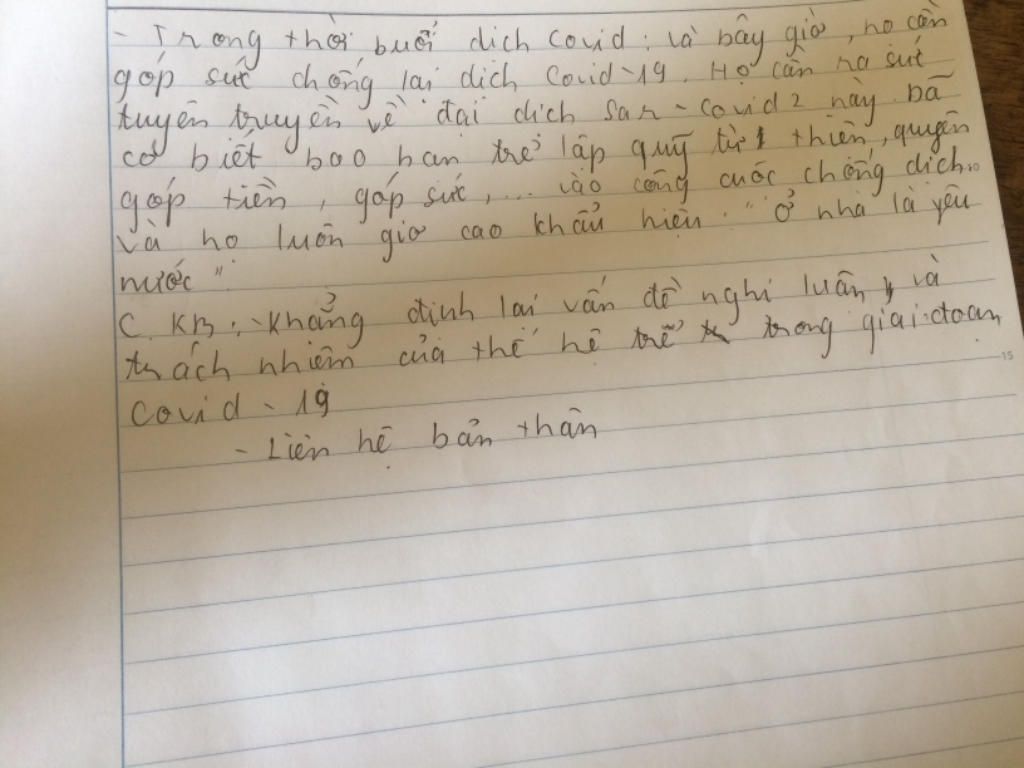 - Trong thời buổi dịch Covid: và bây giờ, họ cần
góp sức chống lại dịch Covid-19. Họ cần ra sức
tuyên truyền về đại dịch Sar-Covid 2 này. Đã
có biết bao bạn trẻ lập quỹ từ thiện, quyên
góp tiền, góp sức,... vào công cuộc chống dịch...
và họ luôn giơ cao khẩu hiệu "ở nhà là yêu
nước"
C. KB: - Khẳng định lại vấn đề nghị luận và
trách nhiệm của thế hệ trẻ trong giai đoạn
Covid - 19
- Liên hệ bản thân
15